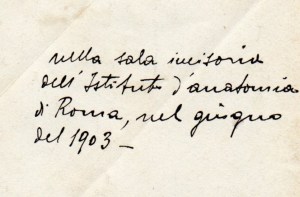 nella sala incisoria
dell'Istituto d'anatomia
di Roma, nel giugno
del 1903 –